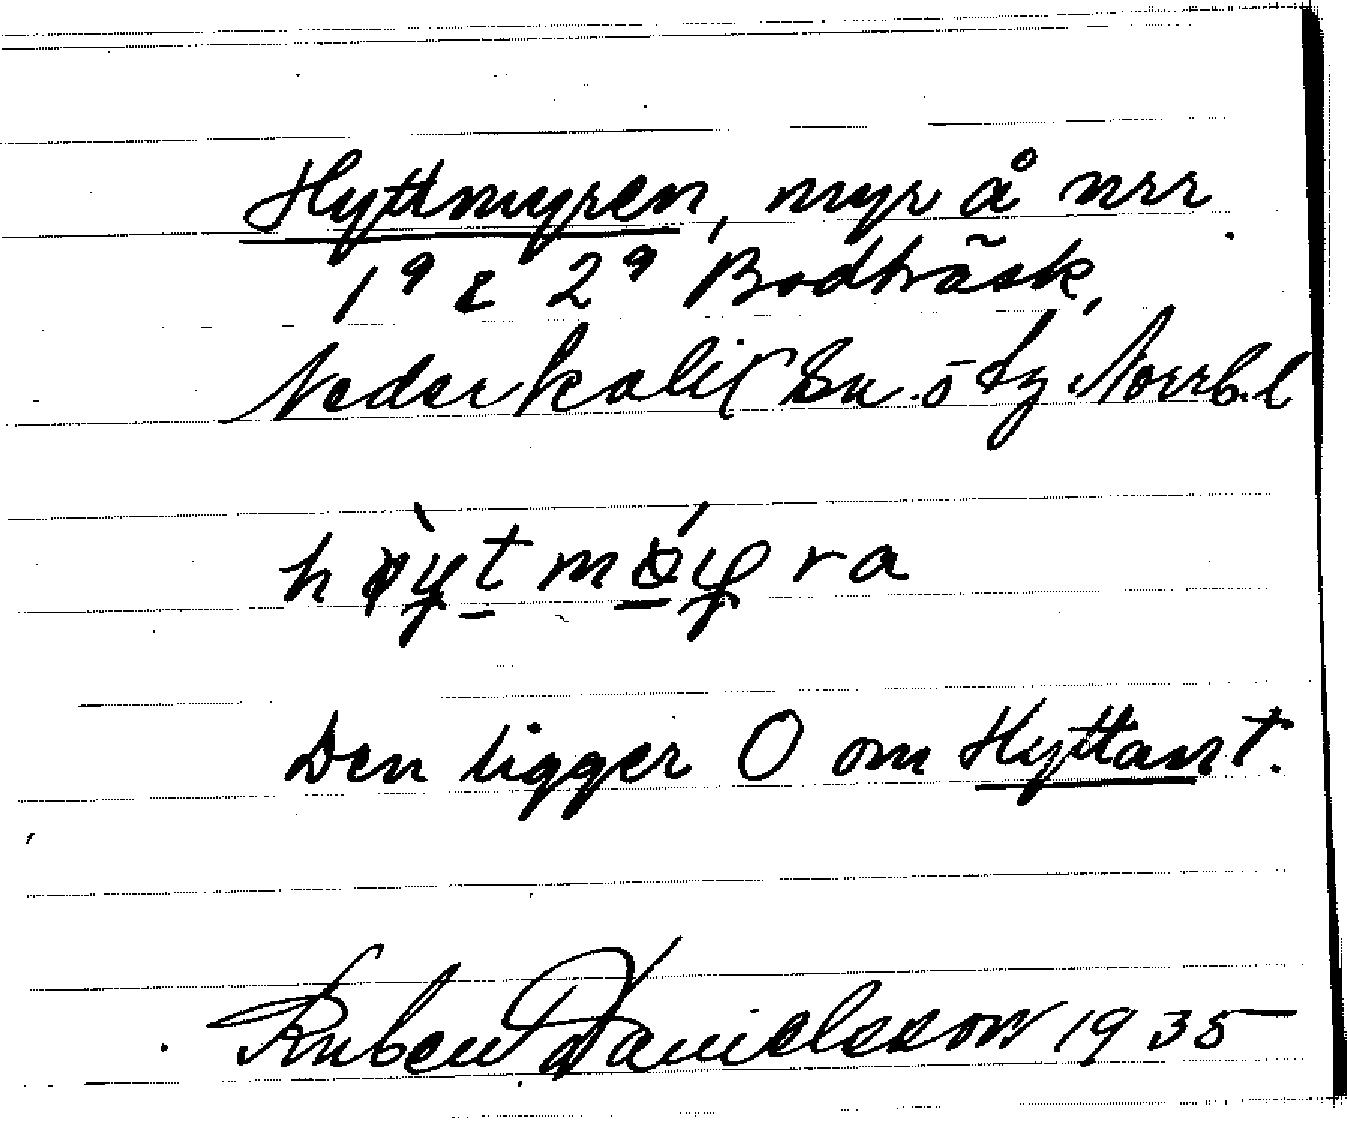 Hyttmyren, myr å nrr
1⁹ & 2⁹ Bodträsk,
Nederkalix sn. ö tg Norrb. l
Den ligger O om Hyttanst.
Ruben Danielsson 1935